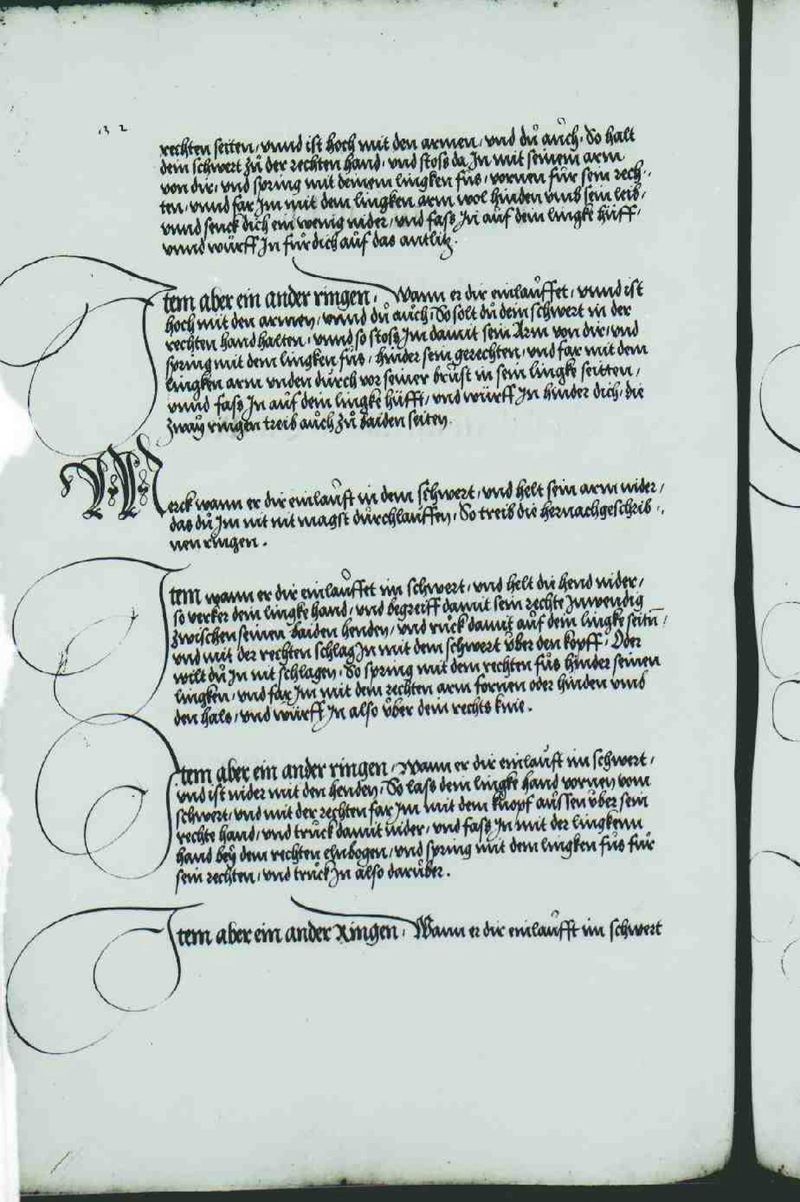 132
rechten seiten, vnnd ist hoch mit den armen, vnd dů aůch. So halt
dein schwert zů der rechten hand, vnd stoss da In mit seinem arm
von dir, vnd spring mit deinem lingken fůs, vornen für sein rech-
ten, vnnd far Im mit dem lingken arm wol hinden vmb sein leib,
vnnd senck dich ein wenig nider, vnd fass In auf dein lingke hüff,
vnnd würff In für dich auf das antlitz.
Item aber ein ander ringen, Wann er dir einlaůffet, vnnd ist
hoch mit den armen, vnnd dů aůch, So solt dů dein schwert in der
rechten hand halten, vnnd so stoss Im damit sein Arm von dir, vnd
spring mit dem lingken fůs, hinder sein gerechten, vnd far mit dem
lingken arm vnden důrch vor seiner brůst in sein lingke seitten,
vnnd fass In auf dein lingke hüfft, vnd würff In hinder dich, die
zway ringen treib aůch zů baiden seiten.
Merck wann er dir einlaůft in dem schwert, vnd helt sein arm nider,
das dů Im nit nit magst důrchlauffen, So treib die hernachgeschrib-
nen ringen.
Item wann er dir einlaůffet im schwert, vnd helt die hend nider,
so verker dein lingke hand, vnd begreiff damit sein rechte Inwendig
zwischen seinen baiden henden, vnd růck damit auf dein lingke seitn,
vnd mit der rechten schlag In mit dem schwert über den kopff, Oder
wilt dů In nit schlagen, So spring mit dem rechten fůs hinder seinen
lingken, vnd far Im mit dem rechten arm fornen oder hinden vmb
den hals, vnd würff In also über dein rechts knie.
Item aber ein ander ringen, Wann er dir einlaůft im schwert,
vnd ist nider mit den henden, So lass dein lingke hand vornen vom
schwert, vnd mit der rechten far Im mit dem knopf aůssen über sein
rechte hand, vnd trůck damit nider, vnd fass In mit der lingkenn
hand beÿ dem rechten elnbogen, vnd spring mit dem lingken fůs für
sein rechten, vnd trůck In also darüber.
Item aber ein ander Ringen, Wann er dir einlaůfft im schwert